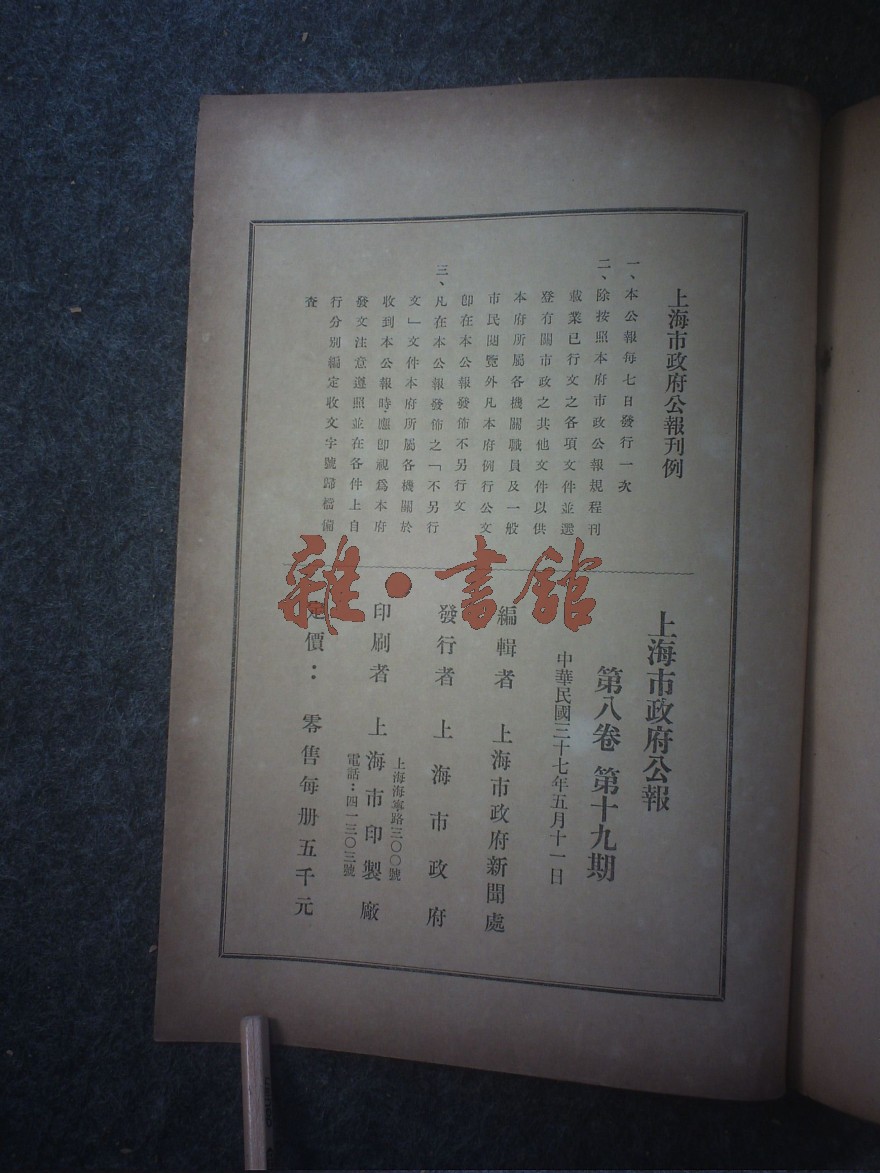 上海市政府公報刊例
一、本公報每七日發行一次
二、除按照本府市政公報規程刊
載業已行文之各項文件並選
登有關市政之其他文件以供
本府所屬各機關職員及一般
市民閱覽外凡本府例行公文
卽在本公報發佈不另行文
三、凡在本公報發佈之「不另行
文」文件本府所屬各機關於
收到本公報時應卽視爲本府
發文注意遵照並在各件上自
行分別編定收文字號歸檔備
查
上海市政府公報
第八卷 第十九期
中華民國三十七年五月十一日
編輯者 上海市政府新聞處
發行者 上海市政府
印刷者 上海市印製廠
上海海寧路三〇〇號
電話：四一三〇三號
定價：零售每册五千元
雜·書館